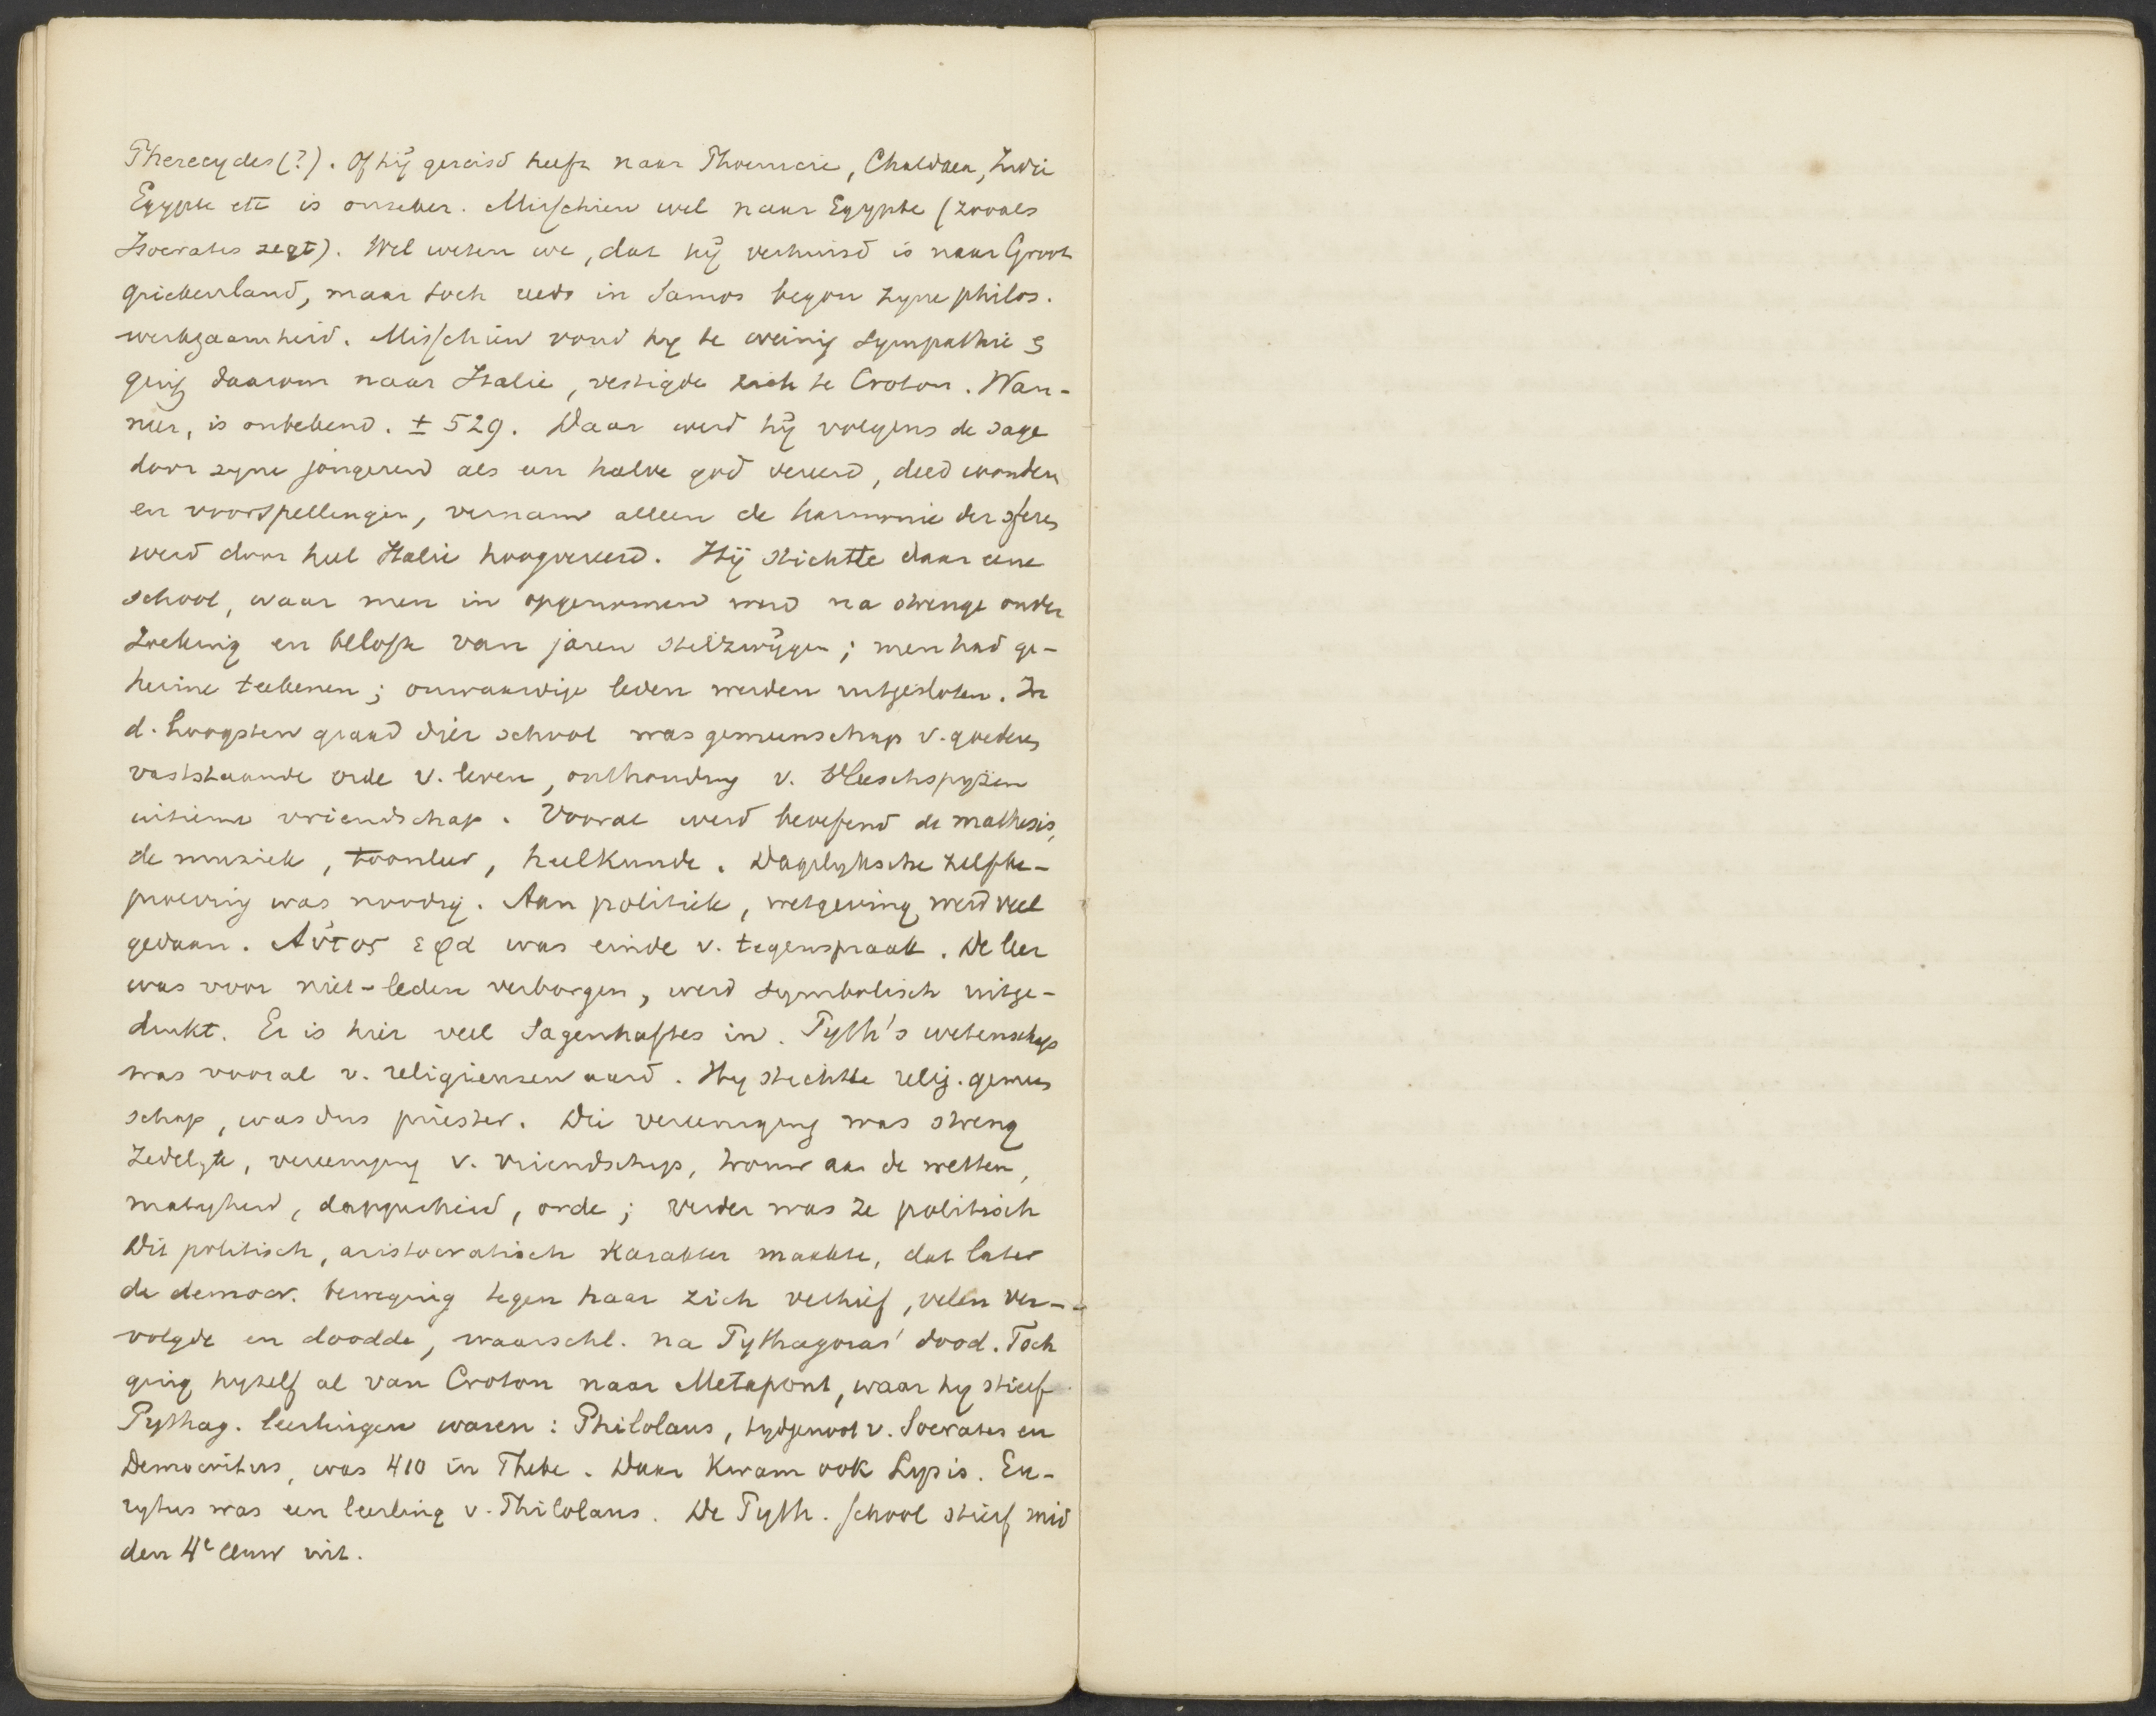 Pherecydes (?). Of hij gereisd heeft naar Phoenicië, Chaldaea, Indië
Egypte etc is onzeker. Misschien wel naar Egypte (zooals
Isocrates zegt). Wel weten we, dat hij verhuisd is naar Groot
griekenland, maar toch reeds in Samos begon zyne philos.
werkzaamheid. Misschien vond hy te weinig sympathie &
ging daarom naar Italie, vestigde zich te Croton. Wan-
neer, is onbekend. ± 529. Daar werd hij volgens de sage
door zyne jongeren als een halve god vereerd, deed wonderen
en voorspellingen, vernam alleen de harmonie der sferen
werd door heel Italie hoogvereerd. Hij stichtte daar eene
school, waar men in opgenomen werd na strenge onder
zoeking en belofte van jaren stilzwijgen; men had ge-
heime teekenen; onwaardige leden werden uitgesloten. In
d. hoogsten graad dier school was gemeenschap v. goederen
vaststaande orde v. leven, onthouding v. vleeschspyzen
intieme vriendschap. Vooral werd beoefend de mathesis,
de muziek, toonleer, heelkunde. Dagelyksche zelfbe-
proeving was noodig. Aan politiek, wetgeving werd veel
gedaan. Αὐτος εφα was einde v. tegenspraak. De leer
was voor niet-leden verborgen, werd symbolisch uitge-
drukt. Er is hier veel Sagenhaftes in. Pyth's wetenschap
was vooral v. religieusen aard. Hy stichtte relig. gemeen
schap, was dus priester. Die vereeniging was streng
zedelyk, vereeniging v. vriendschap, trouw aan de wetten,
matigheid, dapperheid, orde; verder was ze politisch
Dit politisch, aristocratisch karakter maakte, dat later
de democr. beweging tegen haar zich verhief, velen ver-
volgde en doodde, waarschl. na Pythagoras' dood. Toch
ging hyzelf al van Croton naar Metapont, waar hy stierf
Pythag. leerlingen waren: Philolaus, tydgenoot v. Socrates en
Democritus, was 410 in Thebe. Daar kwam ook Lysis. Eu-
rytus was een leerling v. Philolaus. De Pyth. school stierf mid
den 4e eeuw uit.